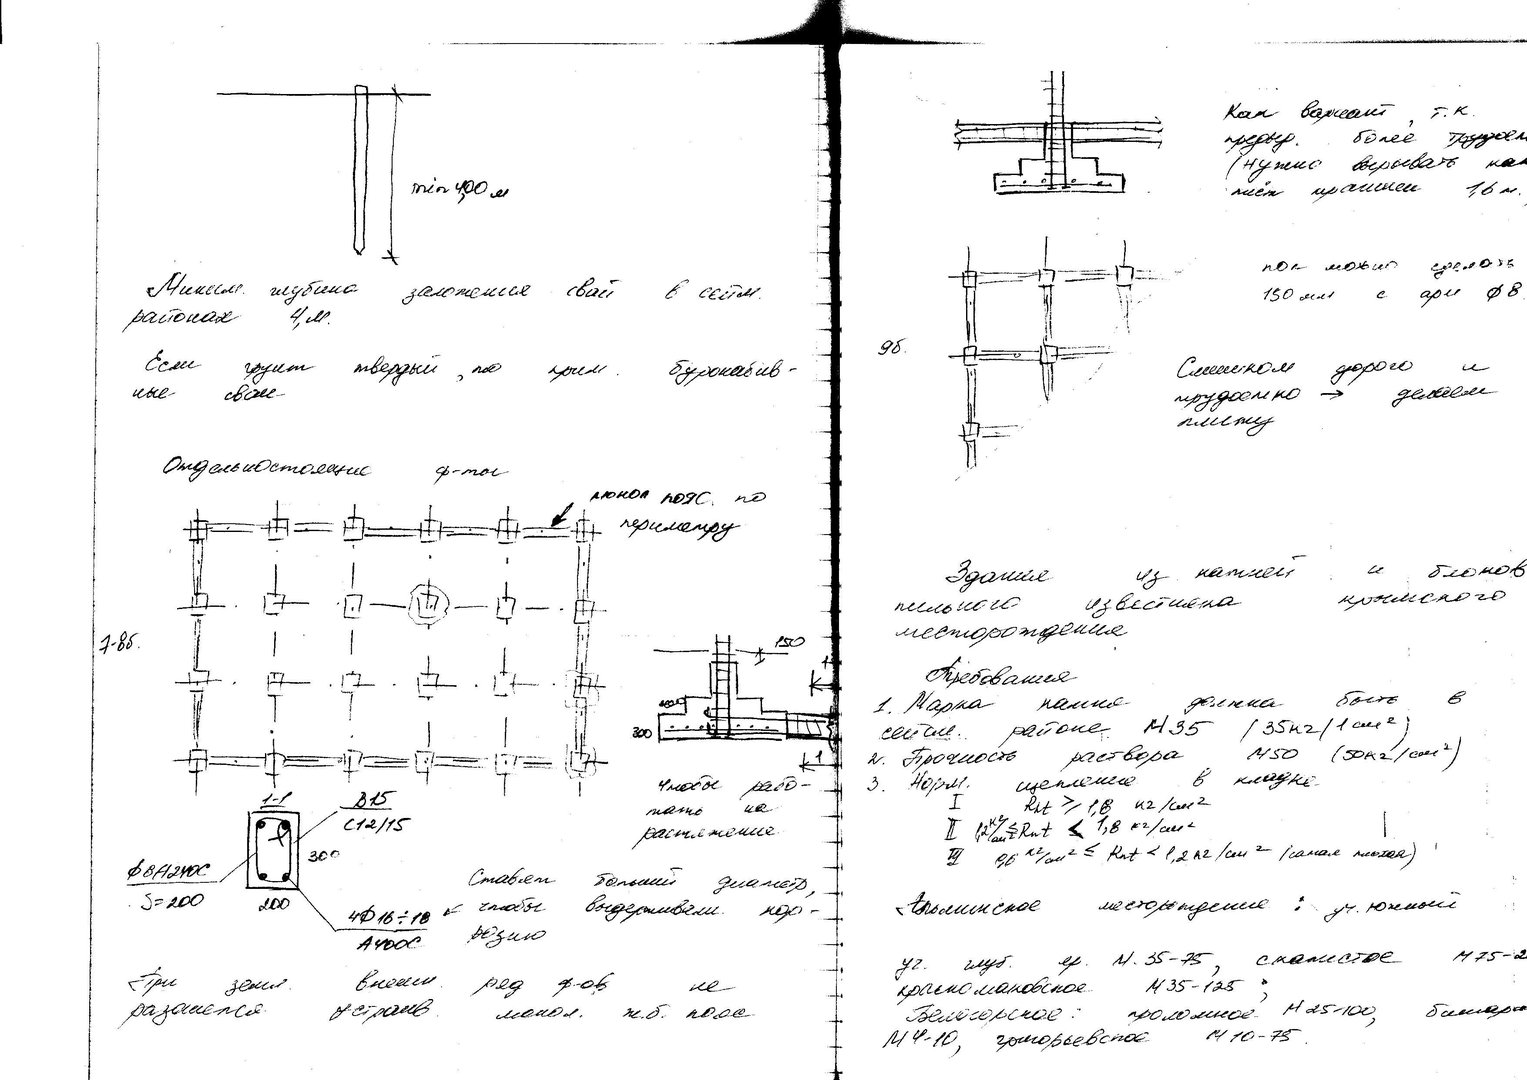 min 4,00 м
Миним. глубина заложения свай в сейсм.
районах 4 м.
Если грунт твердый, то прим. буронабив-
ные сваи
Отдельностоящие ф-ты
монол пояс. по
периметру
7-8б.
150
300
1
1
Чтобы рабо-
тать на
растяжение
1-1
В15
С12/15
300
ф8А240С
S=200
200
4Ф16÷18
А400С
Ставят больший диаметр,
чтобы выдерживали кор-
розию
При земл. внешн. ряд ф-ов не
разънется устраив. монол. ж.б. пояс
Как вариант, т.к.
предыд. более
(нужно вырывать
1,6 м.
пол можно сделать
150 мм с арм ф8
9б.
Слишком дорого и
трудоемко → делаем
плиту
Здания из камней и блоков
пильного известняка крымского
месторождения
Требования
1. Марка камня должна быть в
сейсм. районе М35 (35кг/1см²)
2. Прочность раствора М50 (50кг/см²)
3. Норм. сцепление в кладке
I Rнt ≥ 1,8 кг/см²
II 1,2 кг/см² ≤ Rнt < 1,8 кг/см²
III 0,6 кг/см² ≤ Rнt < 1,2 кг/см² (самая плохая)
месторождение: уч. южный
уч. глуб. ер. М.35-75, скалистое М75-2
красномаковское М35-125;
Белогорское: проломное М25-100,
М4-10, григорьевское М10-75.